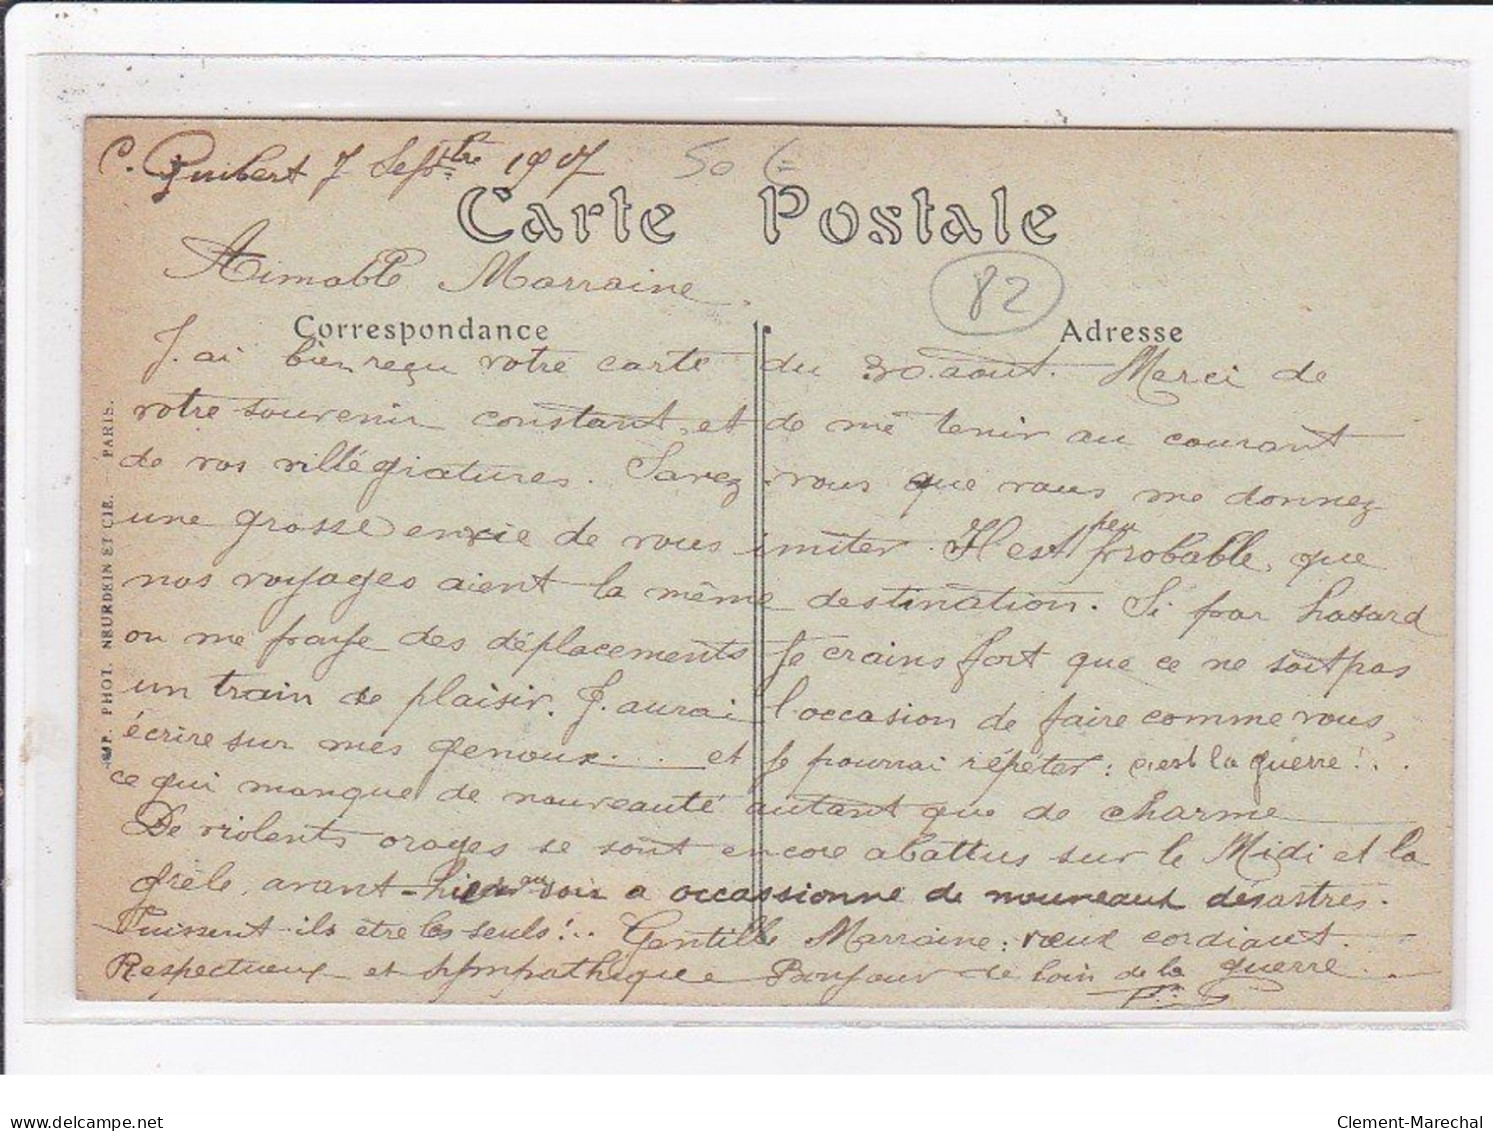 C. Guibert 7 Septbre 1917 50 €
Carte Postale
Aimable Marraine.
82
Correspondance Adresse
J'ai bien reçu votre carte du 30 août. Merci de
votre souvenir constant et de me tenir au courant
de vos villégiatures. Savez-vous que vous me donnez
une grosse envie de vous imiter. Il est peu probable que
nos voyages aient la même destination. Si par hasard
on me fraye des déplacements je crains fort que ce ne soit pas
un train de plaisir. J'aurai l'occasion de faire comme vous,
écrire sur mes genoux.... et je pourrai répéter : c'est la guerre !..
ce qui manque de nouveauté autant que de charme
De violents orages se sont encore abattus sur le Midi et la
grêle, avant-hier au soir a occassionné de nouveaux désastres.
Puissent-ils être les seuls !.. Gentille Marraine : vœux cordiaux.
Respectueux et sympathique Bonjour de loin de la guerre.
IMP. PHOT. NEURDEIN ET CIE. - PARIS.
Clement-Marechal
www.delcampe.net